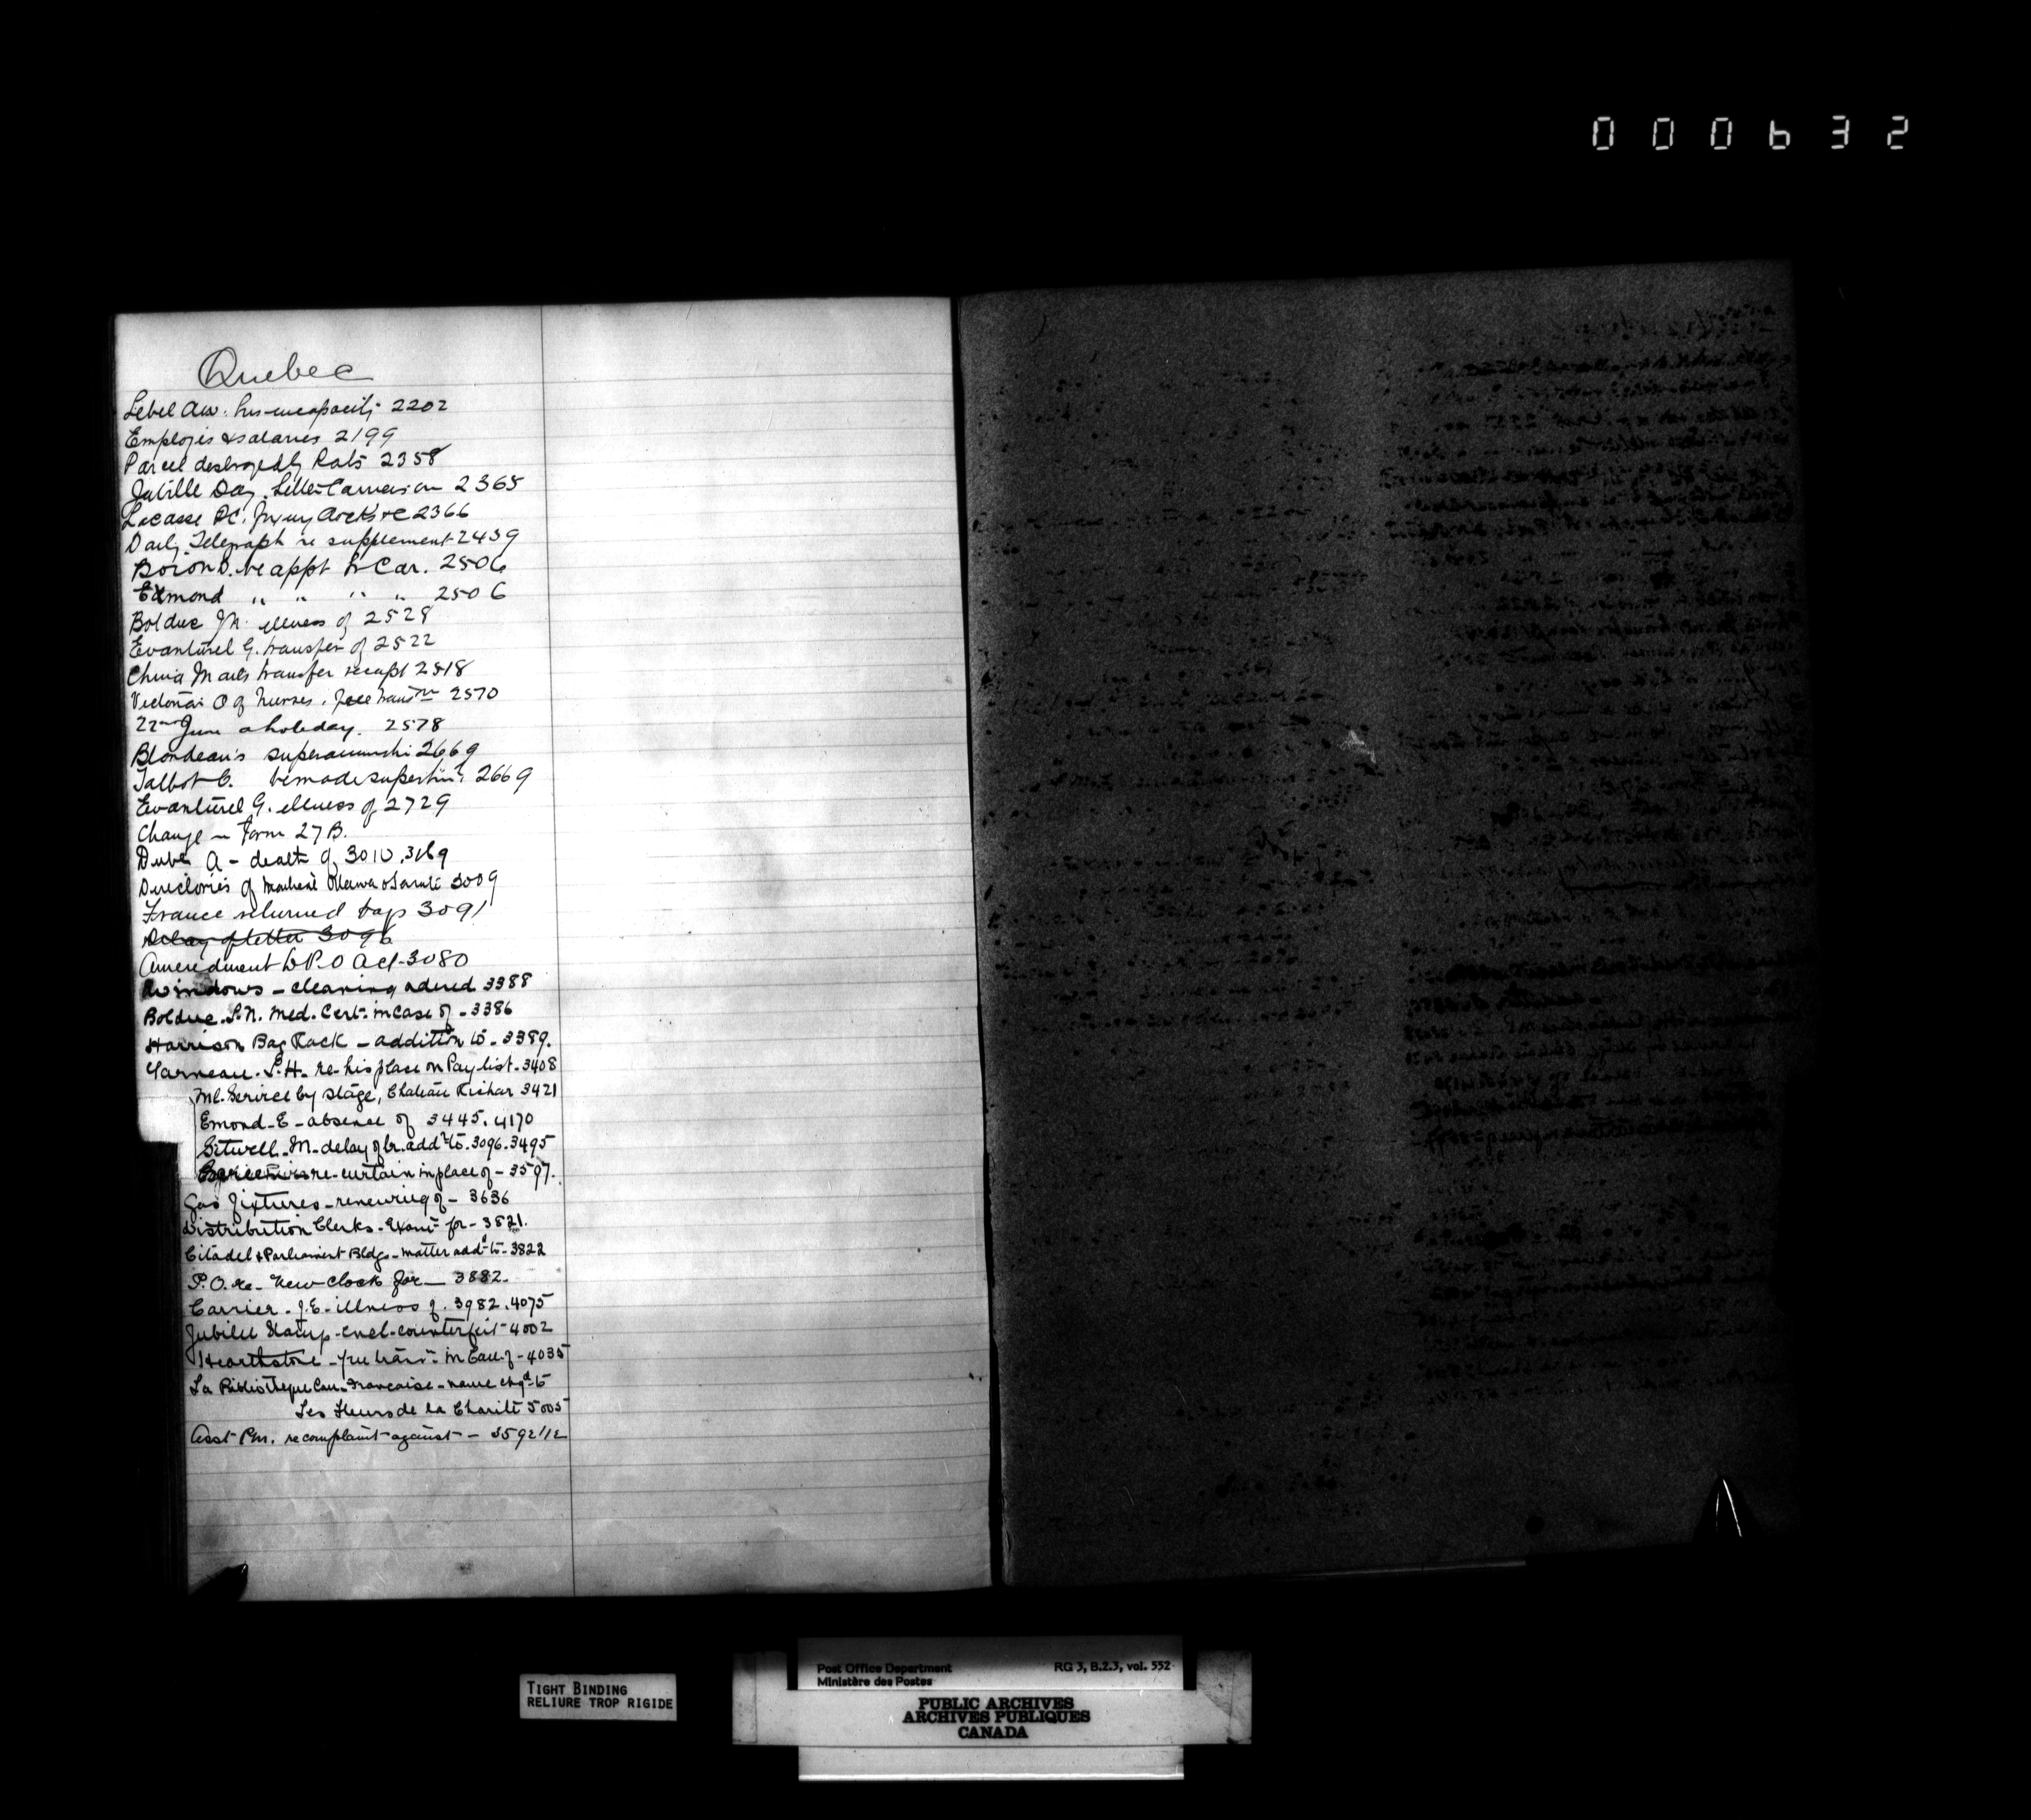 000632
Quebec
Lebel Alx. his incapacity 2202
Employés & salaries 2199
Parcel destroyed by Rats 2358
Jubille Day. Letter Carriers on 2365
Lacasse P.C. 2366
Daily Telegraph re supplement 2439
Boron D. re appt Lr Car. 2506
Edmond " " " " 2506
Bolduc J.N. illness of 2528
Evanturel G. transfer of 2522
China Mails transfer receipt 2518
Victoria O of Nurses. free transm 2570
22nd June a holiday. 2578
Blondeau's superannuatn 2669
Talbot C. be made supertind 2669
Evanturel G. illness of 2729
Change in Form 27 B.
Dubé A - death of 3010. 3169
Directories of Montreal Ottawa & 3009
France returned bags 3091
Delay of letter 3096
Amendment to P.O Act - 3080
Windows - cleaning ordered 3388
Bolduc. J.N. Med. Cert. in case of - 3386
Harrison Bag Rack - addition to - 3389.
Garneau. L.H. re his place on Pay list - 3408
Ml. Service by stage, Chateau Richer 3421
Emond - E - absence of 3445. 4170
Sitwell - M - delay of lr. addd to. 3096. 3495
re - curtain in place of - 3597.
Gas fixtures - renewing of - 3636
Distribution Clerks - Examn for - 3821.
Citadel & Parliament Bldgs - matter addd to - 3822
P.O. re - New clock for - 3882.
Carrier - J.E - illness of. 3982. 4075
Jubilee Stamp - encl - counterfeit - 4002
Hearthstone - free transn in Can. of - 4035
La Bibliotheque Can. Francaise - name chgd to
Les Fleurs de la Charité 5005
Asst P.M. re complaint against - 3592 1/2
TIGHT BINDING
RELIURE TROP RIGIDE
Post Office Department RG 3, B.2.3, vol. 552
Ministère des Postes
PUBLIC ARCHIVES
ARCHIVES PUBLIQUES
CANADA